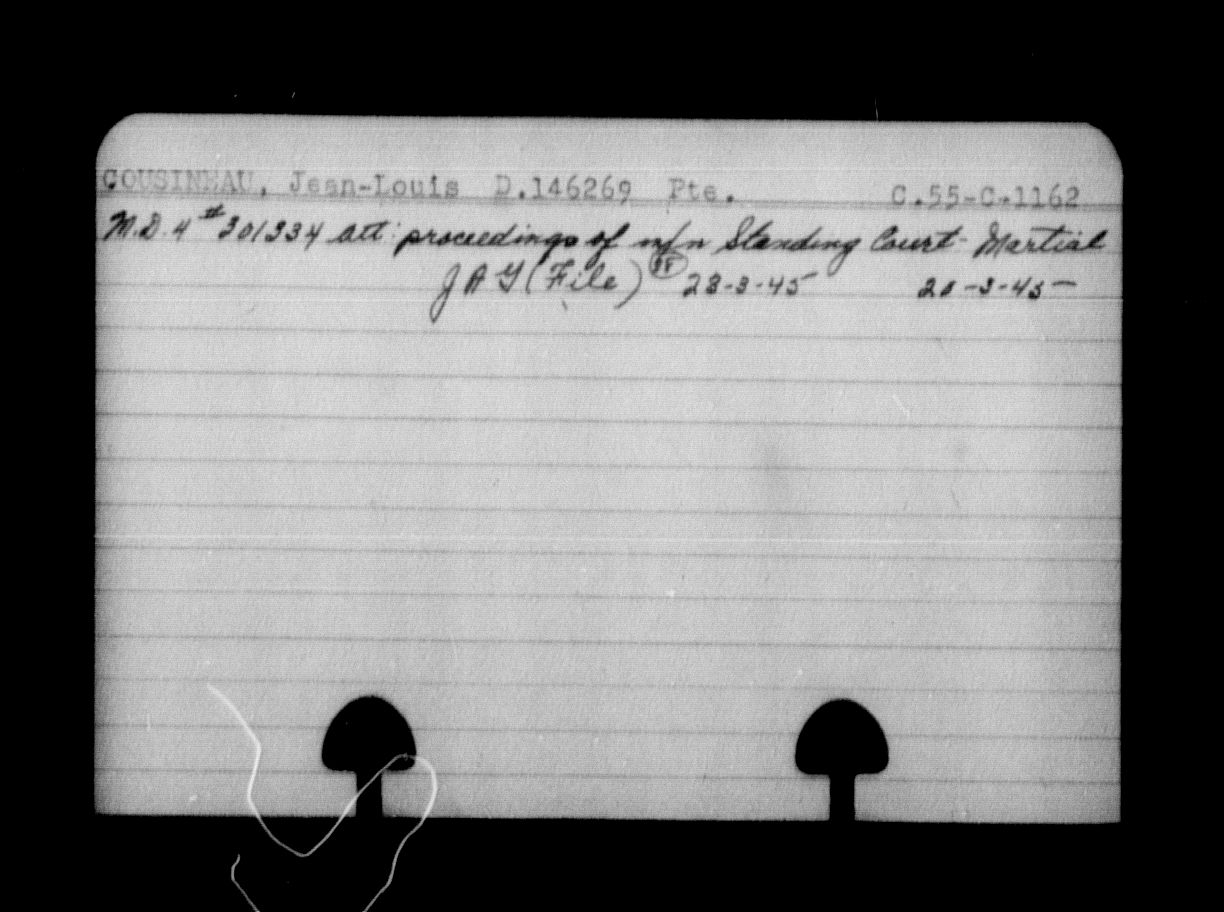 COUSINEAU, Jean-Louis D.146269 Pte. C.55-C.1162
M.D. 4 #301334 att: proceedings of m/n Standing Court-Martial
JAG (File) 28-3-45 20-3-45